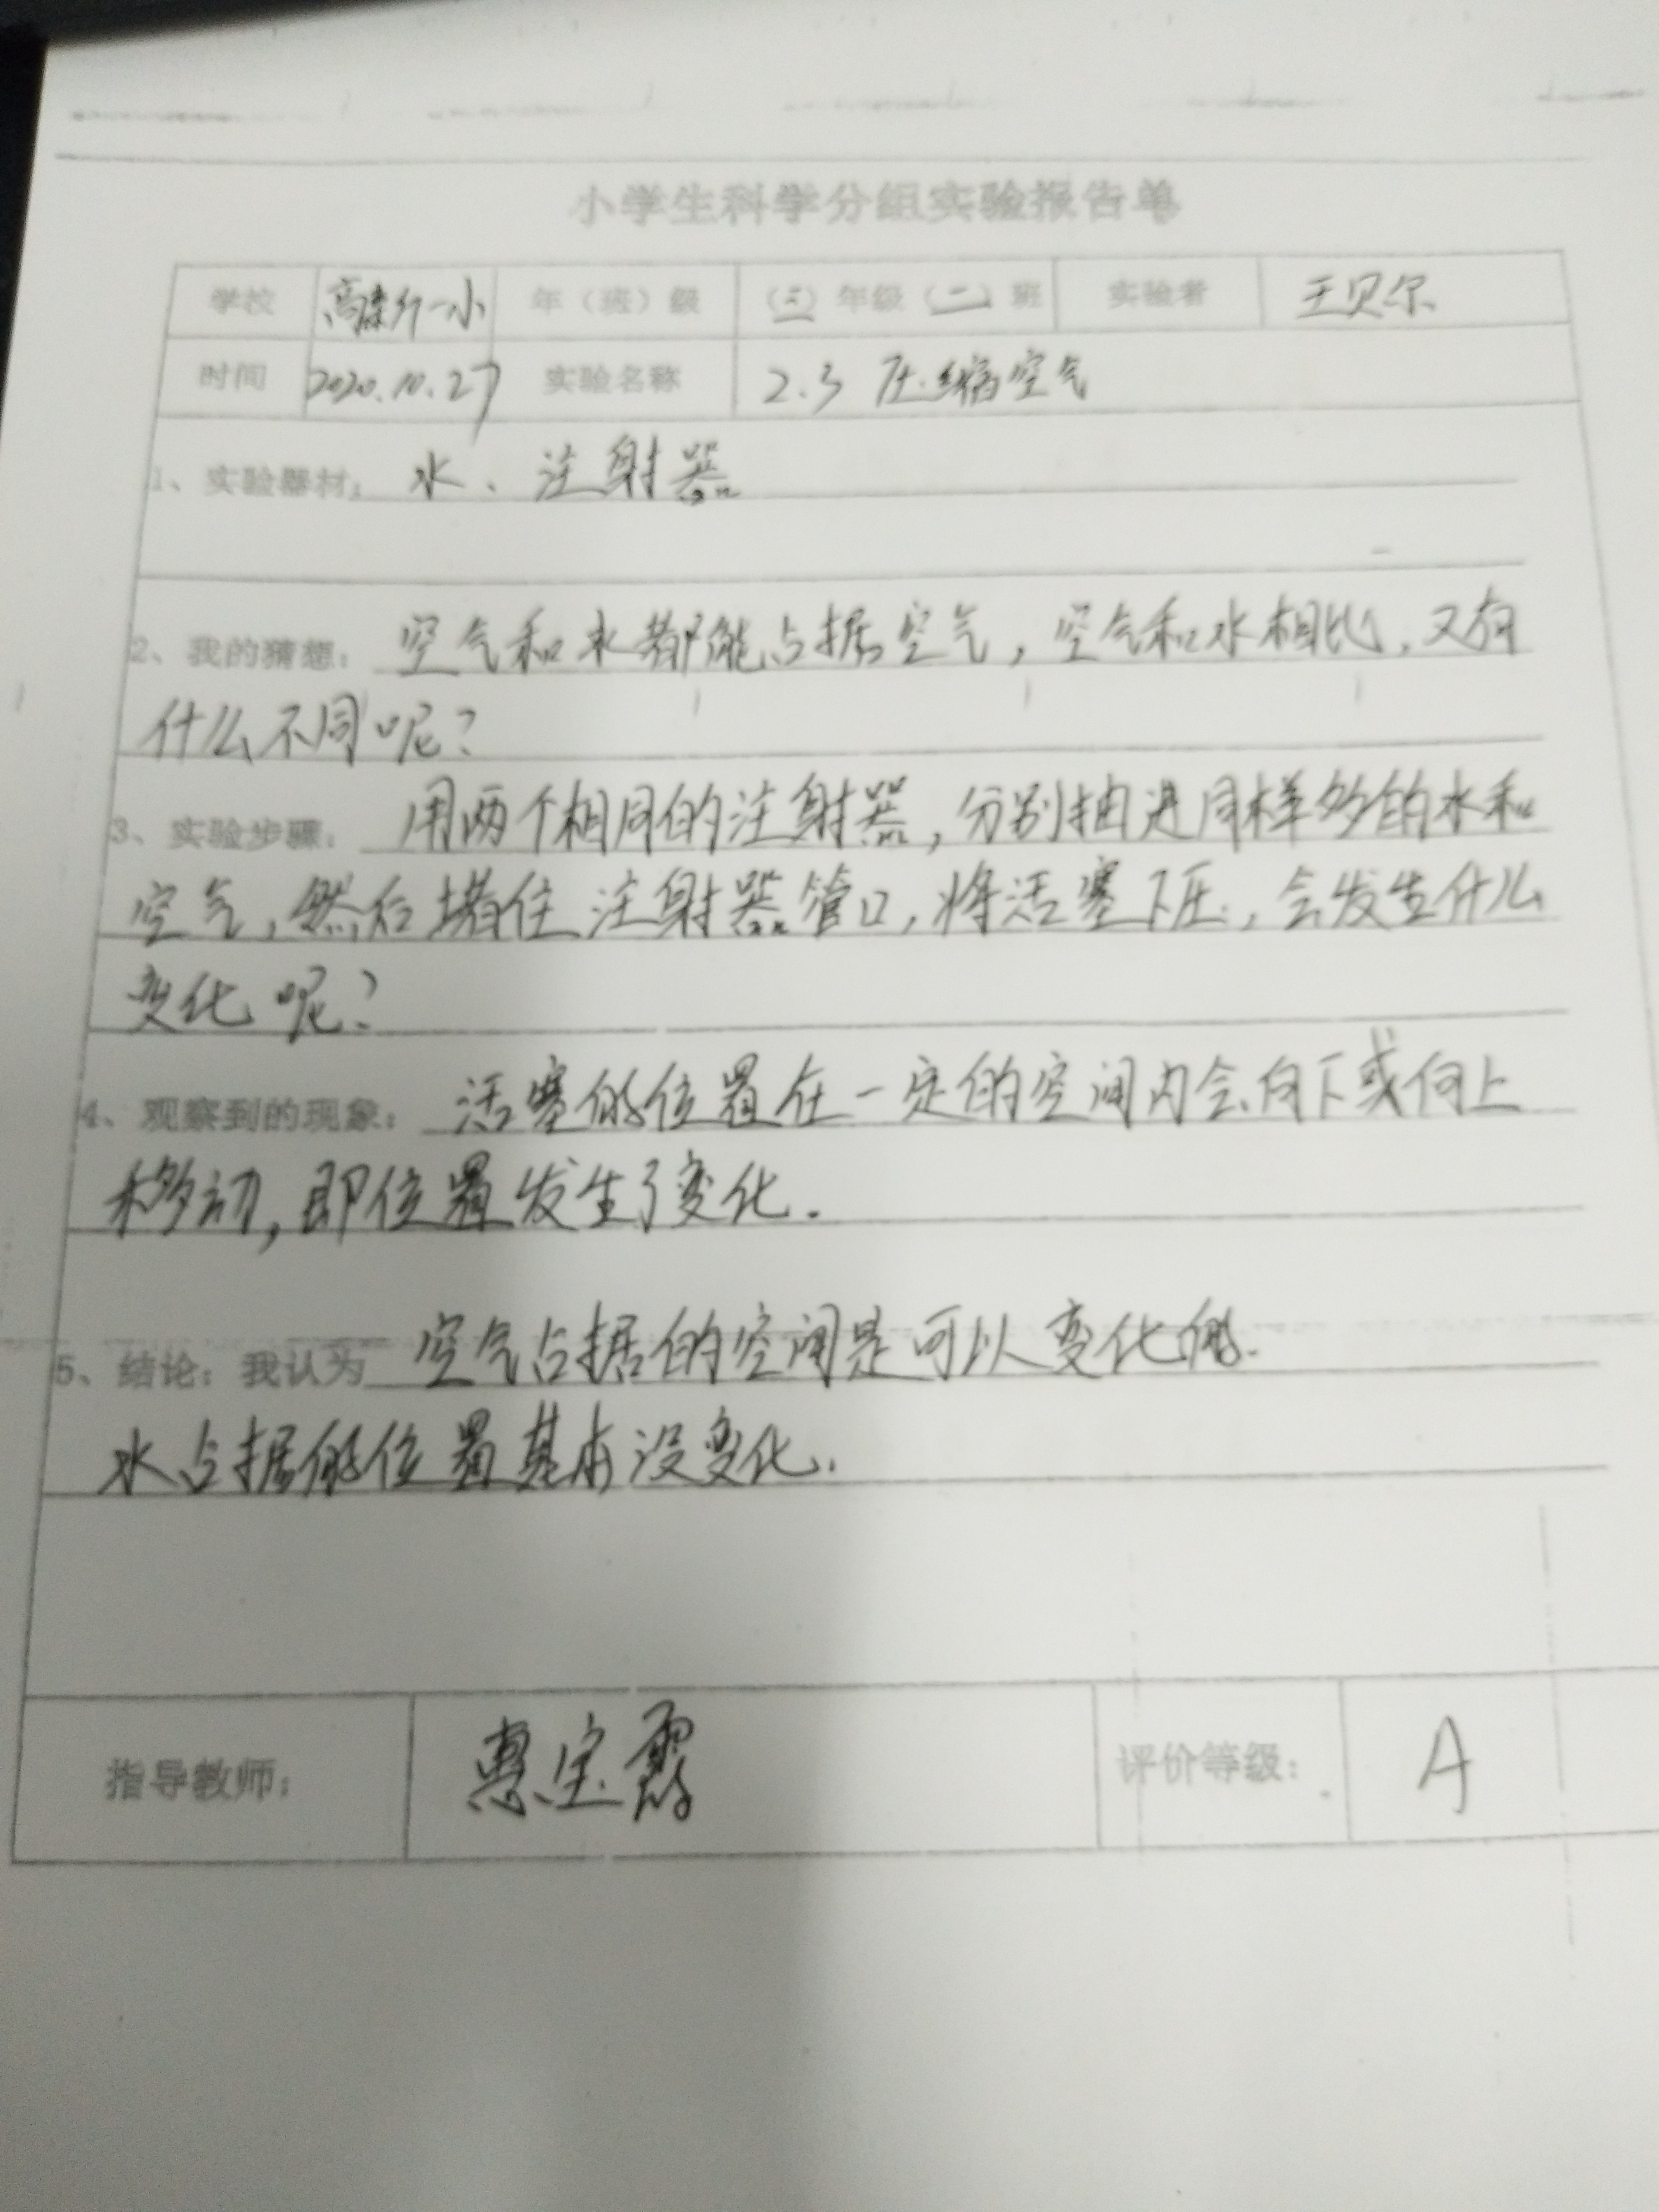 小学生科学分组实验报告单
学校 年（班）级 （三）年级（一）班 实验者 王贝尔
时间 2020.10.27 实验名称 2.3 压缩空气
1、实验器材： 水、注射器
2、我的猜想： 空气和水都能占据空气，空气和水相比，又有
什么不同呢？
3、实验步骤： 用两个相同的注射器，分别抽进同样多的水和
空气，然后堵住注射器管口，将活塞下压，会发生什么
变化呢？
4、观察到的现象： 活塞的位置在一定的空间内会向下或向上
移动，即位置发生了变化．
5、结论：我认为 空气占据的空间是可以变化的．
水占据的位置基本没变化．
指导教师： 惠宝霞 评价等级： A